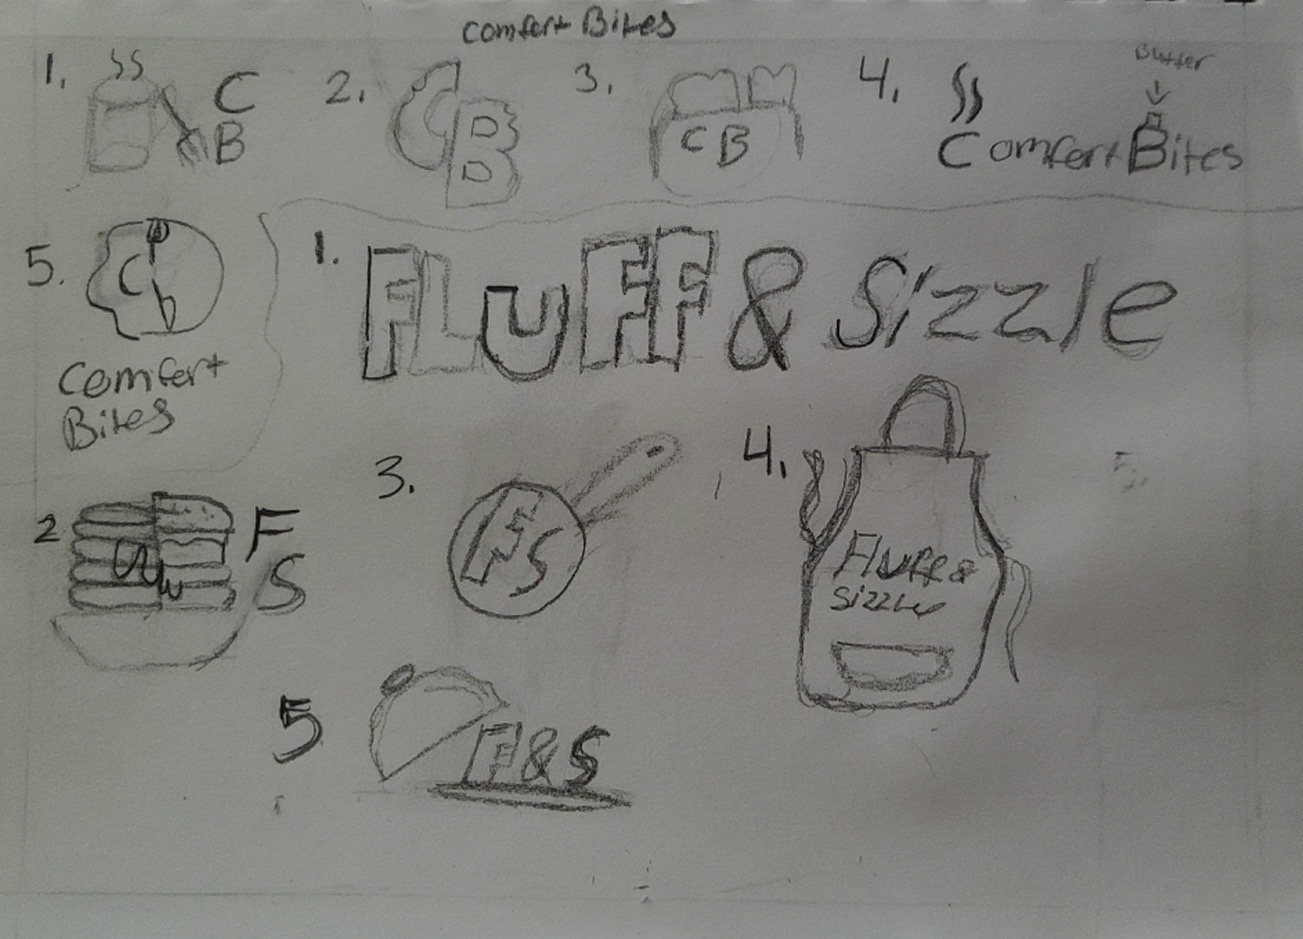 Comfert Bites
1.
C
B
2.
C
B
3.
CB
4.
Butter
Comfert Bites
5.
C
b
Comfert
Bites
1. FLuFF & Sizzle
2
F
S
3.
FS
4.
Fluff &
Sizzle
5.
5
F&S